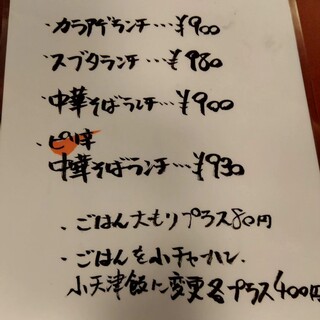 ・カラアゲランチ…¥900
・スブタランチ…¥980
・中華そばランチ…¥900
・ピリ辛
中華そばランチ…¥930
・ごはん大もりプラス80円
・ごはんを小チャーハン、
小天津飯に変更各プラス400円